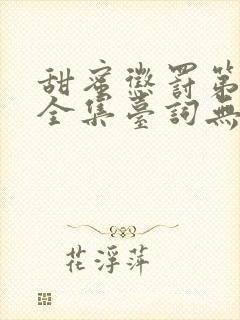 甜蜜懲罰第
全集臺詞無
花浮萍